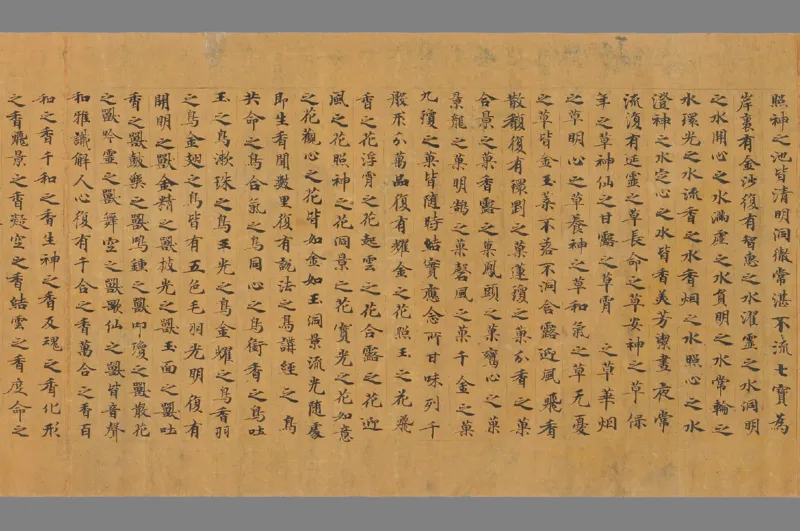 照神之池皆清明洞徹常湛不流七寶為
岸裏有金沙復有智惠之水濯靈之水洞明
之水開心之水滿虛之水負明之水常輪之
水環光之水流香之水香烟之水照心之水
澄神之水定心之水皆香美芳潔晝夜常
流復有延靈之草長命之草安神之草保
年之草神仙之甘露之草霄之草華烟
之草明心之草養神之草和氣之草无憂
之草皆金玉菜不落不凋含露近風飛香
散馥復有騄劉之菓蓮瓊之菓分香之菓
合景之菓香露之菓鳳頭之菓鸞心之菓
景龍之菓明鵠之菓磬風之菓千金之菓
九瓊之菓皆隨時結實應念所甘味列千
般采分萬品復有耀金之花照玉之花飛
香之花浮霄之花起雲之花合露之花近
風之花照神之花洞景之花寶光之花如意
之花觀心之花皆如金如玉洞景流光随處
即生香聞數里復有說法之鳥講經之鳥
共命之鳥合氣之鳥同心之鳥銜香之鳥吐
玉之鳥漱珠之鳥玉光之鳥金耀之鳥香羽
之鳥金翅之鳥皆有五色毛羽光明復有
開明之獸金精之獸披光之獸玉面之獸吐
香之獸鼓樂之獸鳴鍾之獸叩瓊之獸散花
之獸吟靈之獸舞空之獸歌仙之獸皆音聲
和雅議解人心復有千合之香萬合之香百
和之香千和之香生神之香反魂之香化形
之香飛景之香凝空之香結雲之香度命之